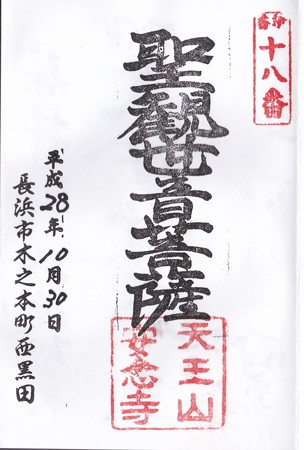 十八番
聖觀世音菩薩
天王山
安念寺
平成28年10月30日
長浜市木之本町西黒田